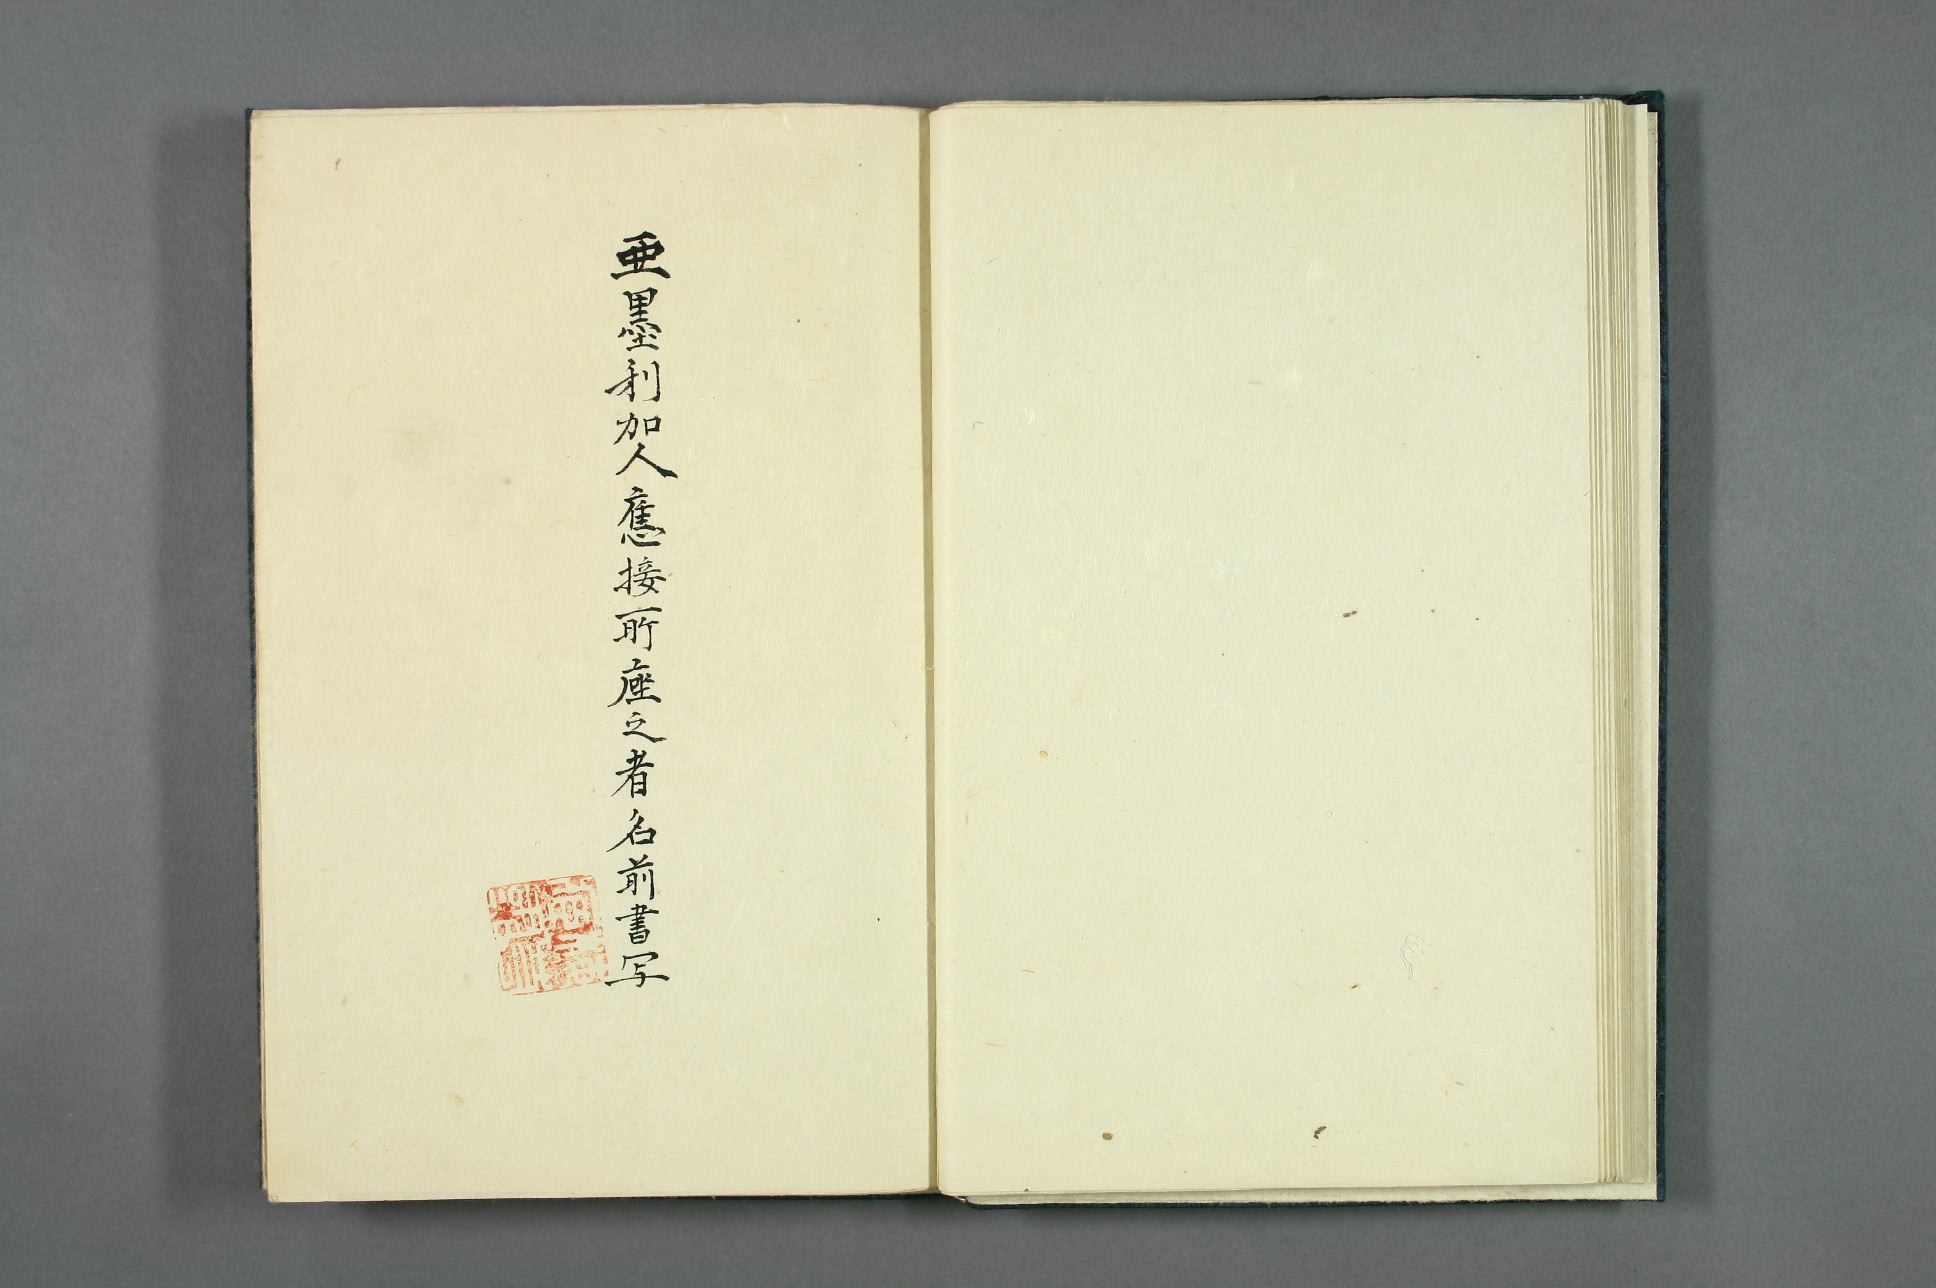 亜墨利加人應接所座之者名前書写